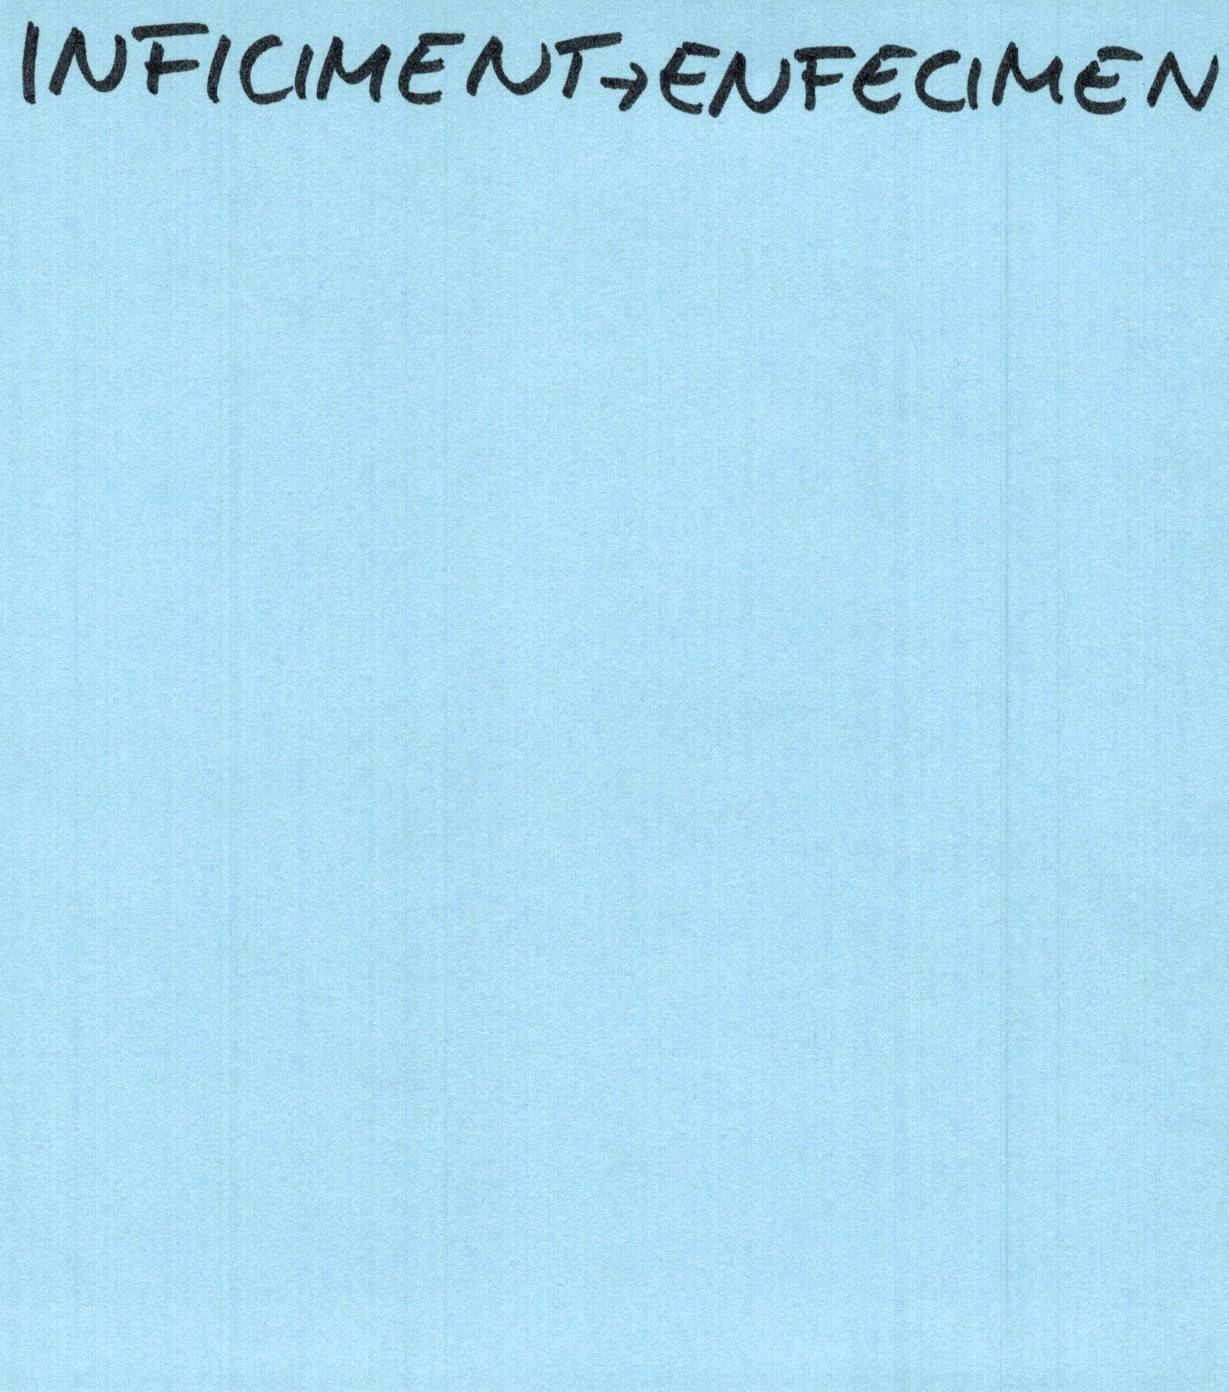 INFICIMENT→ENFECIMEN